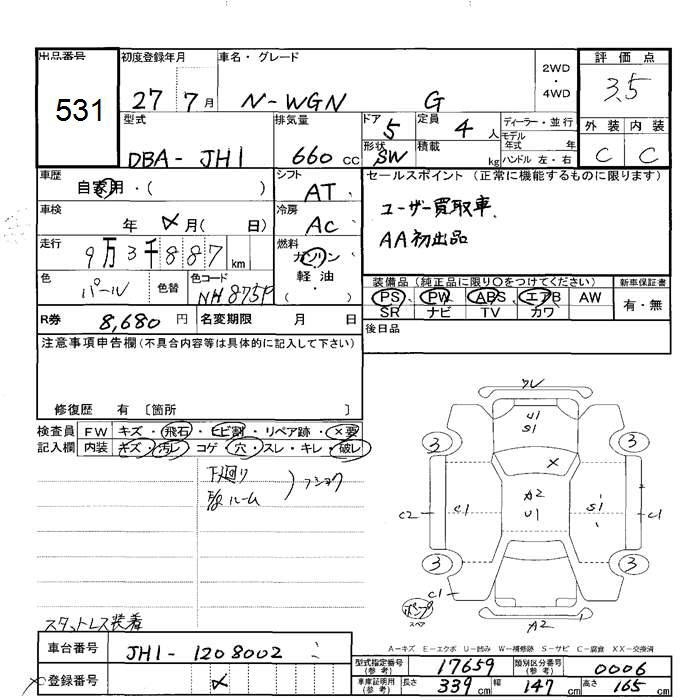 出品番号 初度登録年月 車名・グレード 評価点
531 27 7月 N-WGN G 2WD・4WD 3.5
型式 排気量 ドア 5 定員 4人 ディーラー・並行 外装 内装
DBA-JH1 660cc 形状 SW 積載 kg モデル年式 年 ハンドル 左・右 C C
車歴 自家用・( ) シフト AT セールスポイント (正常に機能するものに限ります)
車検 年 メ月( 日) 冷房 AC ユーザー買取車
走行 9万3千887km 燃料 ガソリン・軽油・( ) AA初出品
色 パール 色替 色コード NH875P 装備品 (純正品に限り〇をつけてください) 新車保証書
PS、PW、ABS、エアB AW 有・無
SR ナビ TV カワ
R券 8,680円 名変期限 月 日 後日品
注意事項申告欄(不具合内容等は具体的に記入して下さい)
修復歴 有 〔箇所 〕
検査員 FW キズ・飛石・ヒビ割・リペア跡・×要
記入欄 内装 キズ・汚レ・コゲ・穴・スレ・キレ・破レ
下廻り
ルーム
フショク
ワレ
U1
S1
X
3 3
A2
U1
C2 C1 S1 C1
3 3
C1
スペア
A2
スタットレス装着
A-キズ E-エクボ U-凹み W-補修跡 S-サビ C-腐食 XX-交換済
車台番号 JH1-1208002
登録番号 メ
型式指定番号(参考) 17659 類別区分番号(参考) 0006
車庫証明用(参考) 長さ 339cm 幅 147cm 高さ 165cm